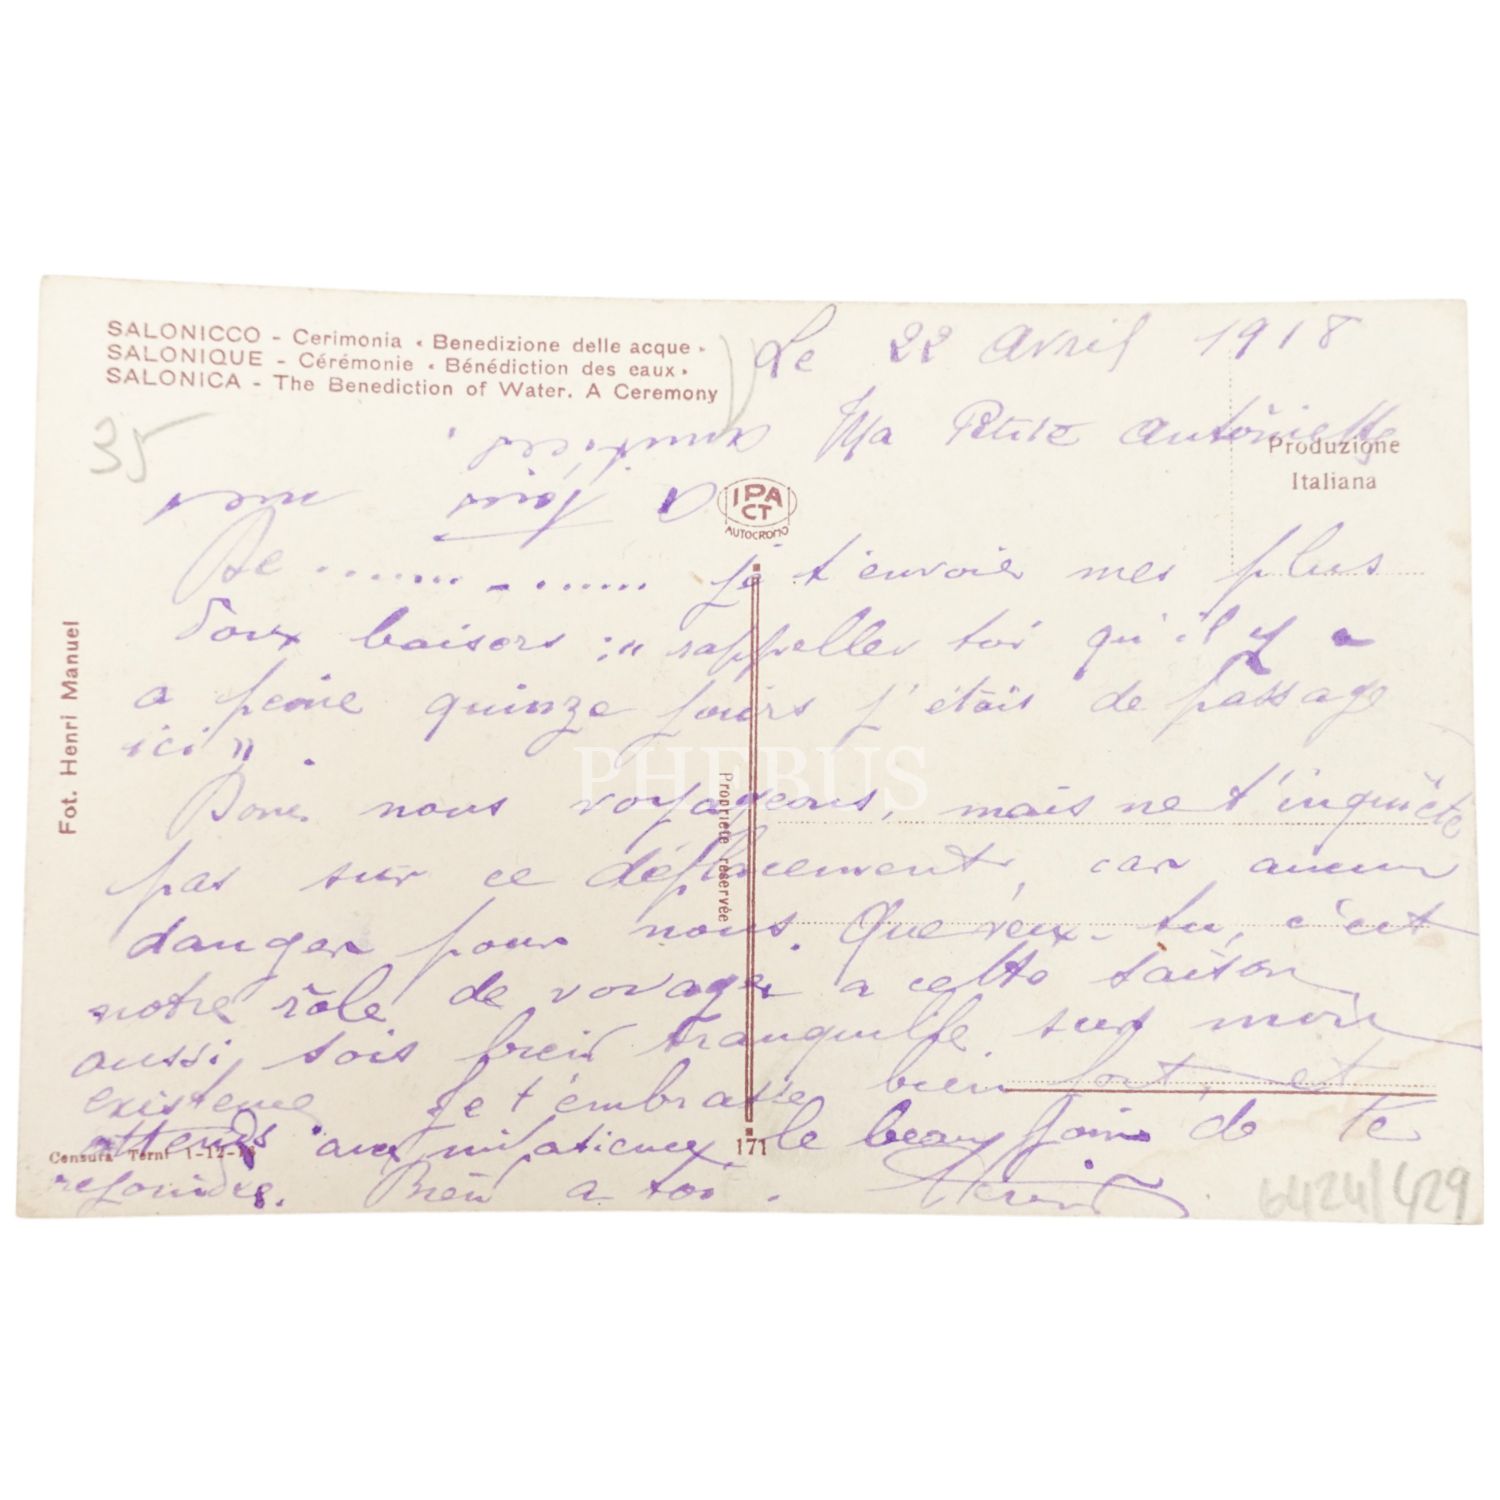 SALONICCO - Cerimonia « Benedizione delle acque »
SALONIQUE - Cérémonie « Bénédiction des eaux »
SALONICA - The Benediction of Water. A Ceremony
35
Le 22 Avril 1918
Ma Petite Antoinette
Produzione
Italiana
A tous mes
amitiés.
IPA
CT
AUTOCROMO
De ........ - ....... je t'envoie mes plus
doux baisers : " rappelles toi qu'il y a
a peine quinze jours j'étais de passage
ici ".
Donc nous voyageons, mais ne t'inquiète
pas sur ce déplacement, car aucun
danger pour nous. Que veux-tu, c'est
notre rôle de voyager a cette saison
aussi, sois bien tranquille sur mon
existence Je t'embrasse bien fort, et
attends avec impatience, le beau jour de te
rejoindre. Bien a toi.
Fot. Henri Manuel
Propriete reservée
PHEBUS
Censura Terni 1-12-
171
6424/429